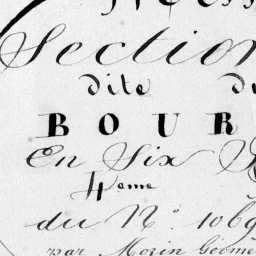 Section
dite
BOUR
En Six
4eme
du N° 1069
par Morin Géomè